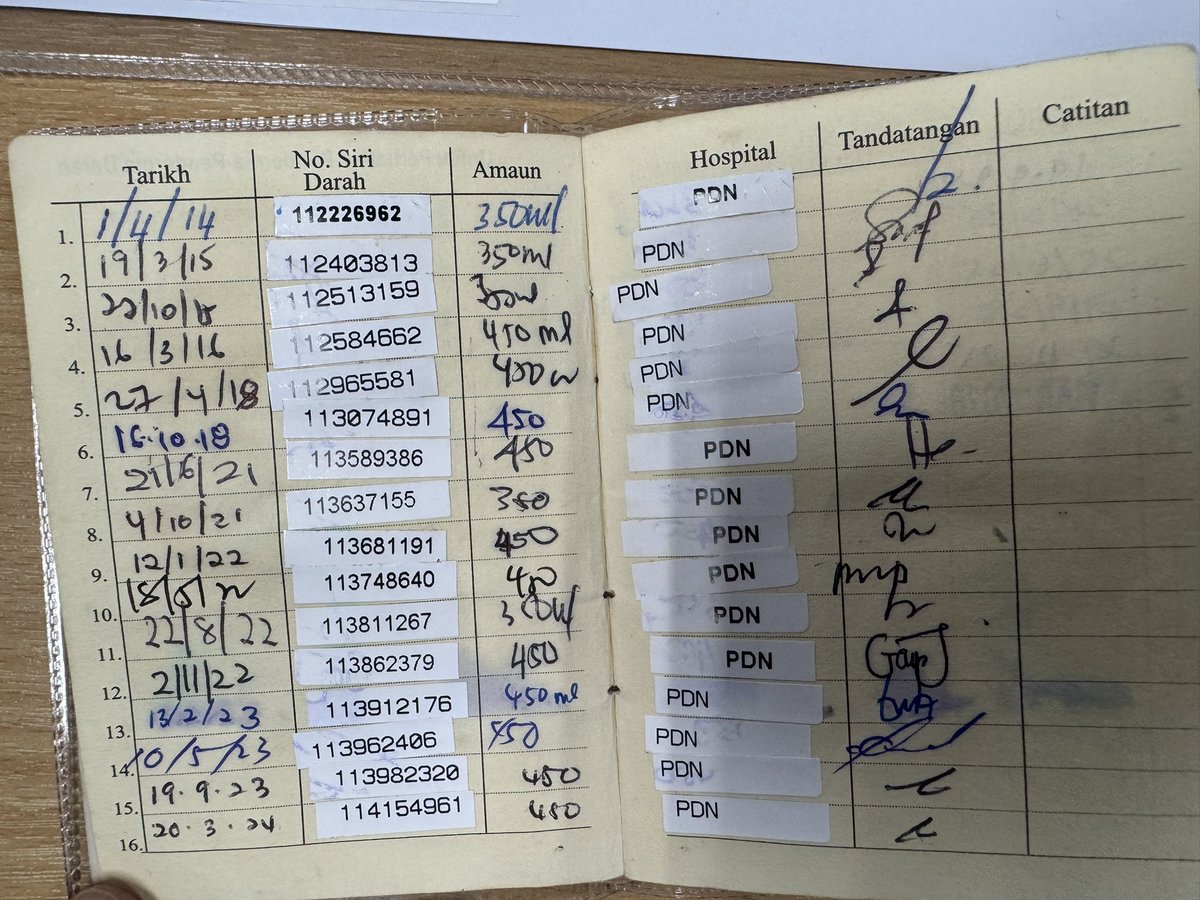 Tarikh No. Siri Darah Amaun Hospital Tandatangan Catitan
1. 1/4/14 112226962 350ml PDN
2. 19/3/15 112403813 350ml PDN
3. 22/10/15 112513159 PDN
4. 16/3/16 112584662 450 ml PDN
5. 27/4/18 112965581 PDN
6. 16.10.18 113074891 450 PDN
7. 21/6/21 113589386 450 PDN
8. 4/10/21 113637155 350 PDN
9. 12/1/22 113681191 450 PDN
10. 113748640 450 PDN
11. 22/8/22 113811267 350ml PDN
12. 2/11/22 113862379 450 PDN
13. 13/2/23 113912176 450 ml PDN
14. 10/5/23 113962406 450 PDN
15. 19.9.23 113982320 450 PDN
16. 20.3.24 114154961 450 PDN